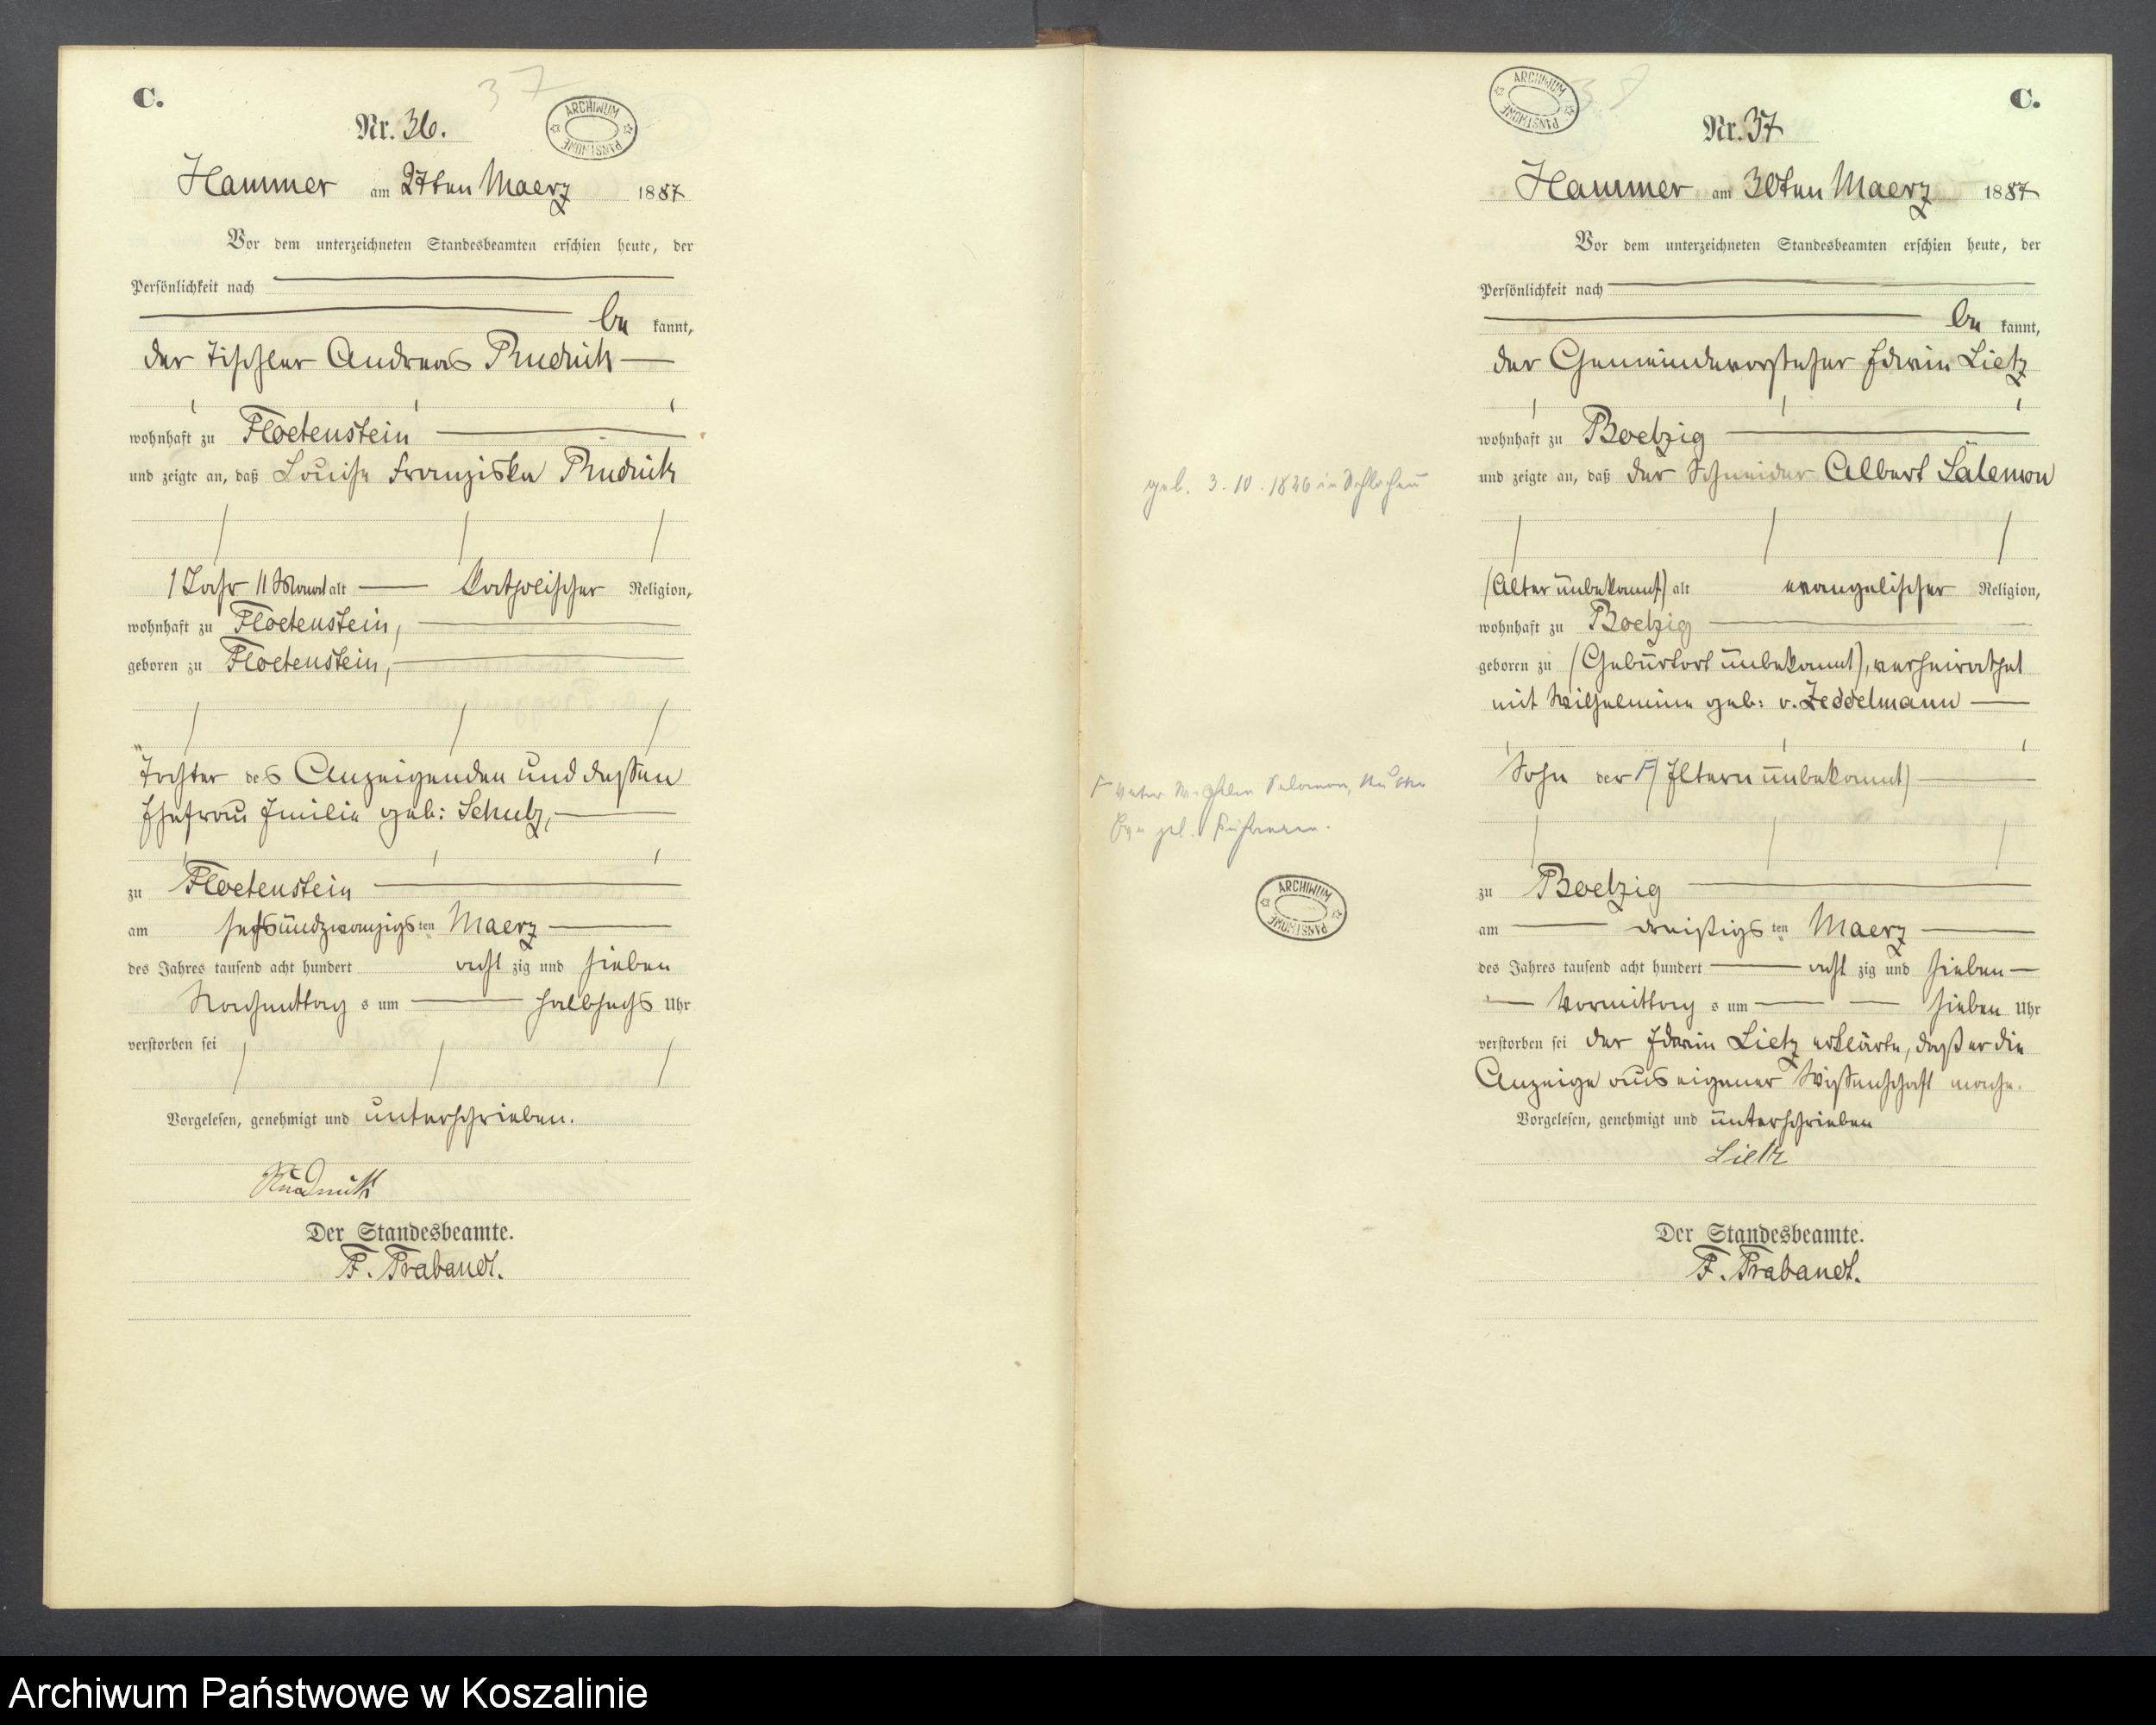 C.
37
Nr. 36.
ARCHIWUM PAŃSTWOWE
Hammer am 27ten Maerz 1887
Vor dem unterzeichneten Standesbeamten erschien heute, der
Persönlichkeit nach
be kannt,
der Tischler Andreas
wohnhaft zu Floetenstein
und zeigte an, daß Louise Franziska
1 Jahr 11 Monat alt katholischer Religion,
wohnhaft zu Floetenstein,
geboren zu Floetenstein,
Tochter des Anzeigenden und dessen
Ehefrau Emilie geb: Schulz,
zu Floetenstein
am sechsundzwanzigsten Maerz
des Jahres tausend acht hundert achtzig und sieben
Nachmittags um halbsechs Uhr
verstorben sei
Vorgelesen, genehmigt und unterschrieben.
Der Standesbeamte.
F. Trabandt.
C.
38
ARCHIWUM PAŃSTWOWE
Nr. 37
Hammer am 30ten Maerz 1887
Vor dem unterzeichneten Standesbeamten erschien heute, der
Persönlichkeit nach
be kannt,
der Gemeindevorsteher Edwin Lietz
wohnhaft zu Boelzig
und zeigte an, daß der Schneider Albert Salemon
geb. 3.10.1826 in Schlochau
(Alter unbekannt) alt evangelischer Religion,
wohnhaft zu Boelzig
geboren zu (Geburtort unbekannt), verheirathet
mit Wilhelmine geb: v. Zeddelmann
Sohn der (Eltern unbekannt)
Vater Salomon, Mutter
geb.
ARCHIWUM PAŃSTWOWE
zu Boelzig
am dreißigsten Maerz
des Jahres tausend acht hundert achtzig und sieben
Vormittags um sieben Uhr
verstorben sei der Edwin Lietz erklärte, daß er die
Anzeige aus eigener Wissenschaft mache.
Vorgelesen, genehmigt und unterschrieben
Lietz
Der Standesbeamte.
F. Trabandt.
Archiwum Państwowe w Koszalinie